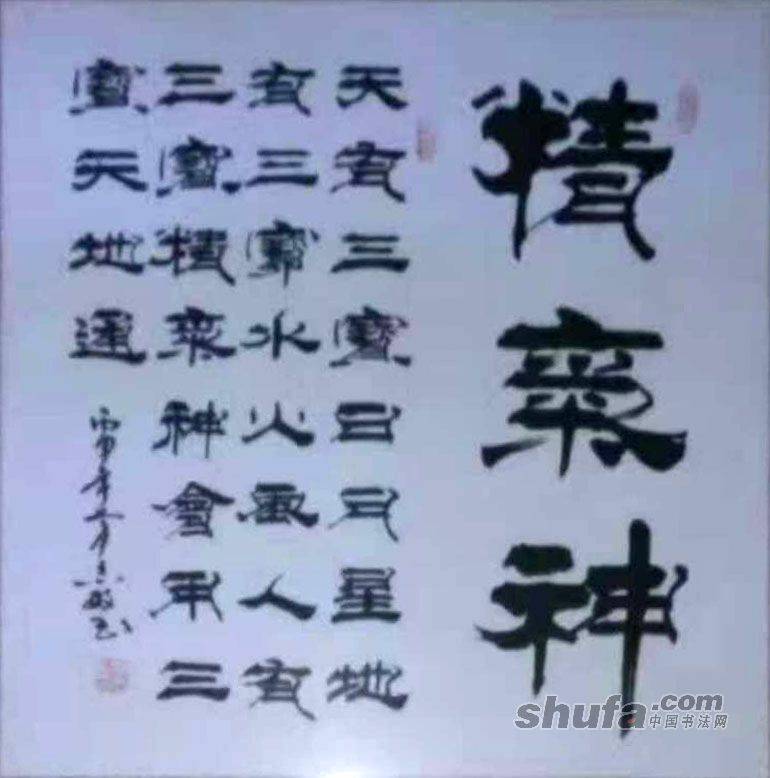 精氣神
天有三寶日月星地
有三寶水火風人有
三寶精氣神會用三
寶天地通
shufa.com
中国书法网